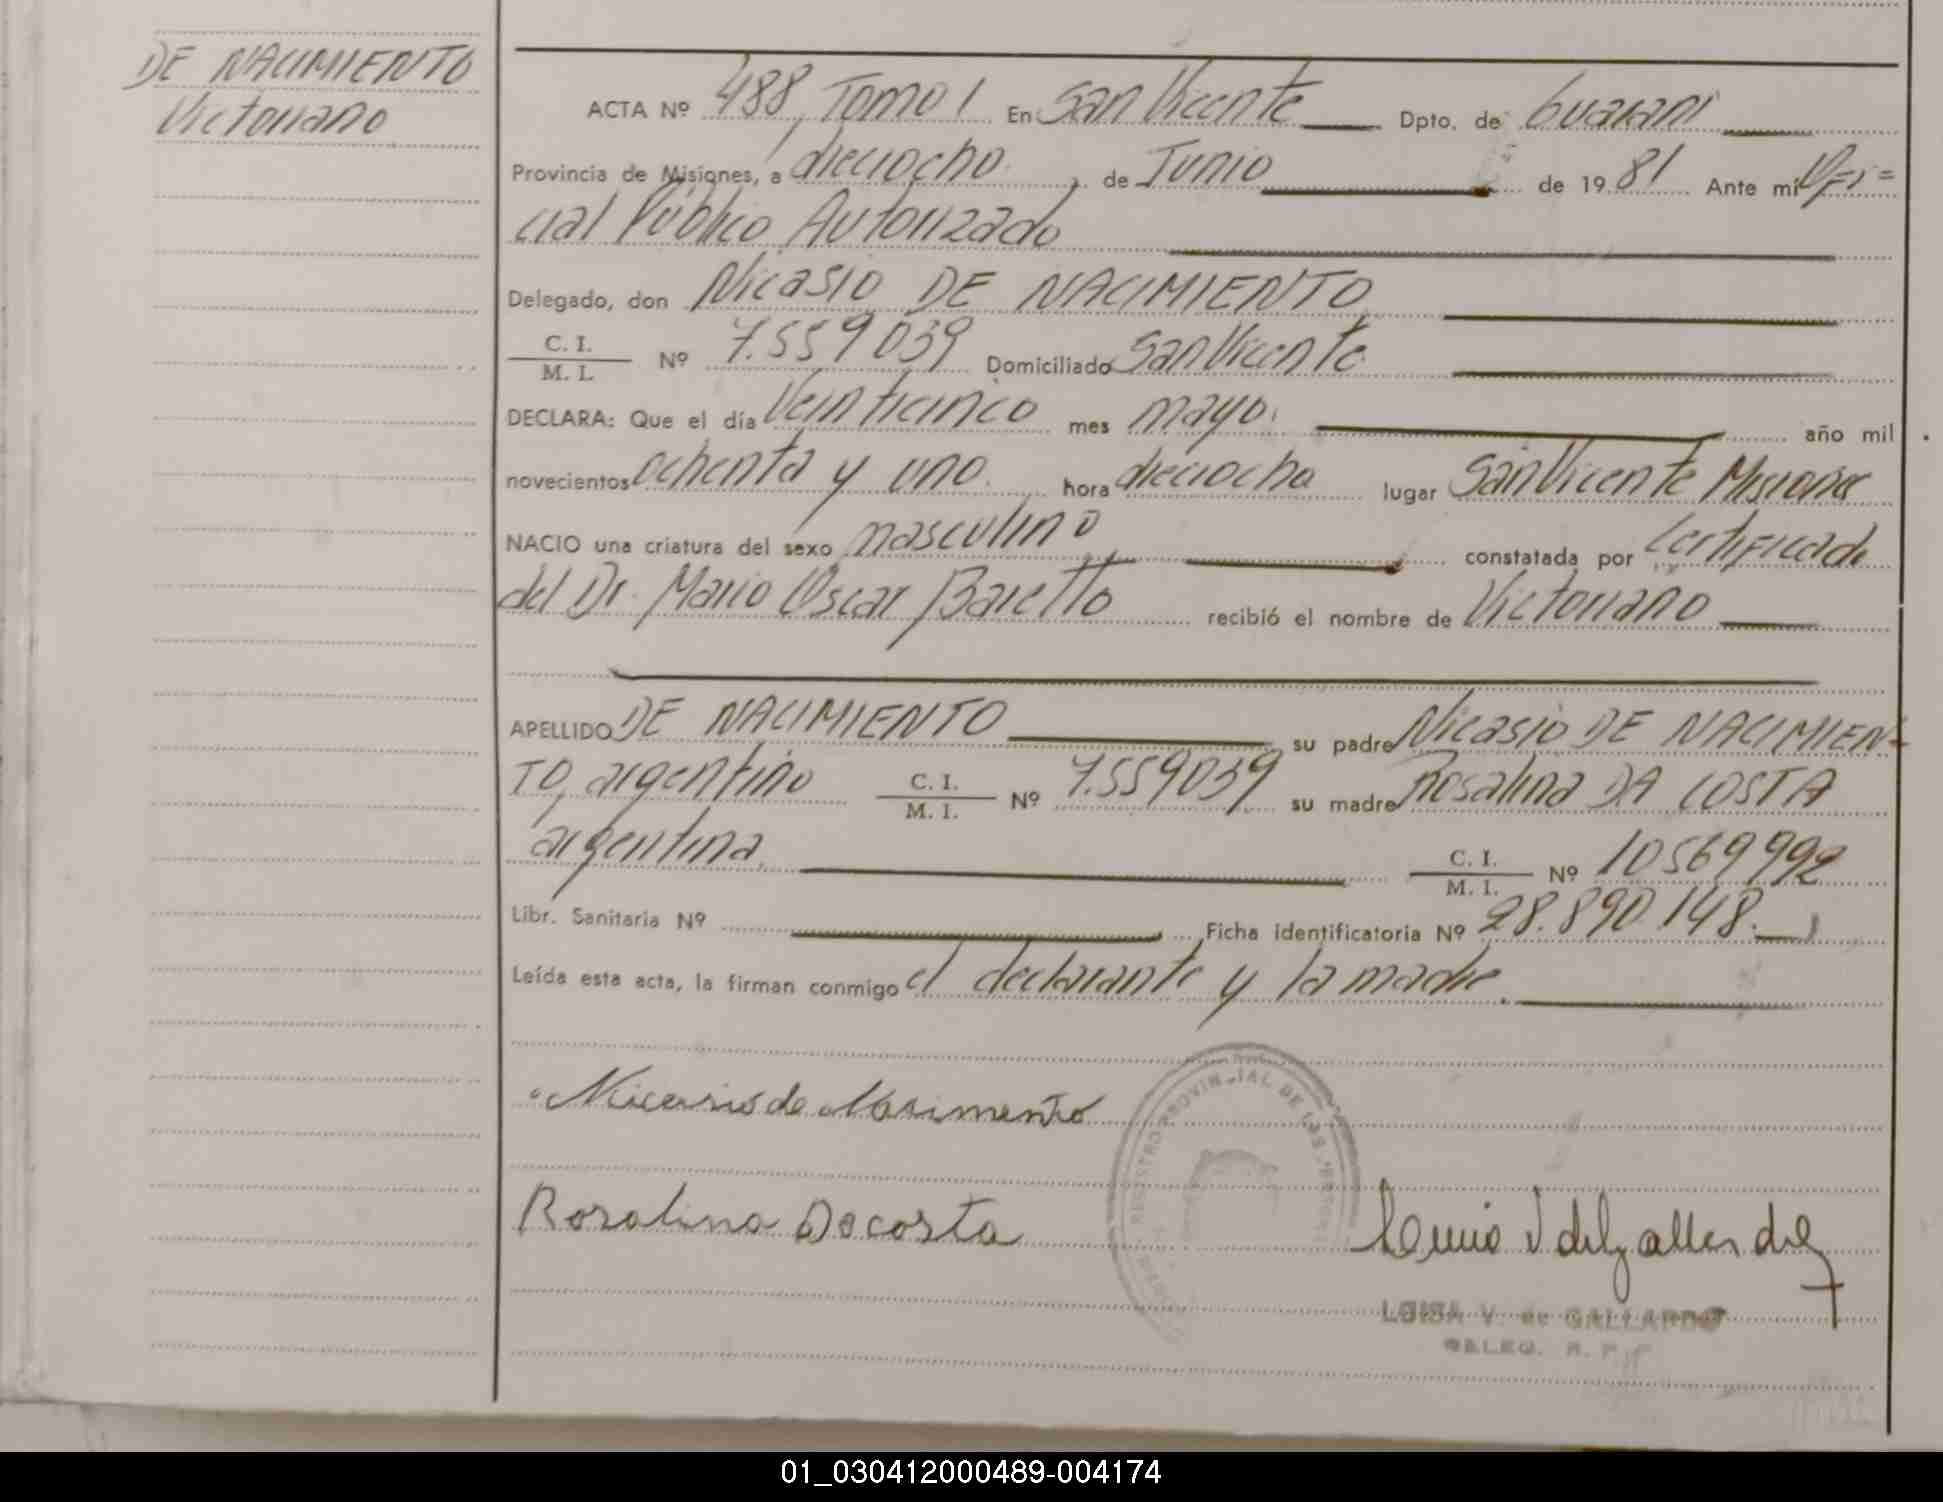 DE NACIMIENTO
Victoriano
ACTA Nº 488, Tomo I En San Vicente Dpto. de Guaraní
Provincia de Misiones, a dieciocho de Junio de 1981 Ante mi Ofi=
cial Público Autorizado
Delegado, don Nicasio DE NACIMIENTO
C. I. / M. I. Nº 7.559039 Domiciliado San Vicente
DECLARA: Que el día Veinticinco mes mayo. año mil
novecientos ochenta y uno hora dieciocho lugar San Vicente Misiones
NACIO una criatura del sexo masculino constatada por Certificado
del Dr. Mario Oscar Baretto recibió el nombre de Victoriano
APELLIDO DE NACIMIENTO su padre Nicasio DE NACIMIEN-
TO, argentino C. I. / M. I. Nº 7.559039 su madre Rosalina DA COSTA
argentina C. I. / M. I. Nº 10569992
Libr. Sanitaria Nº Ficha identificatoria Nº 28.890.148.
Leída esta acta, la firman conmigo el declarante y la madre.
Nicasio de Nasimento
REGISTRO PROVINCIAL DE LAS PERSONAS
Rosalina Dacosta
LUISA V. de GALLARDO
DELEG. R. P. P.
01_030412000489-004174